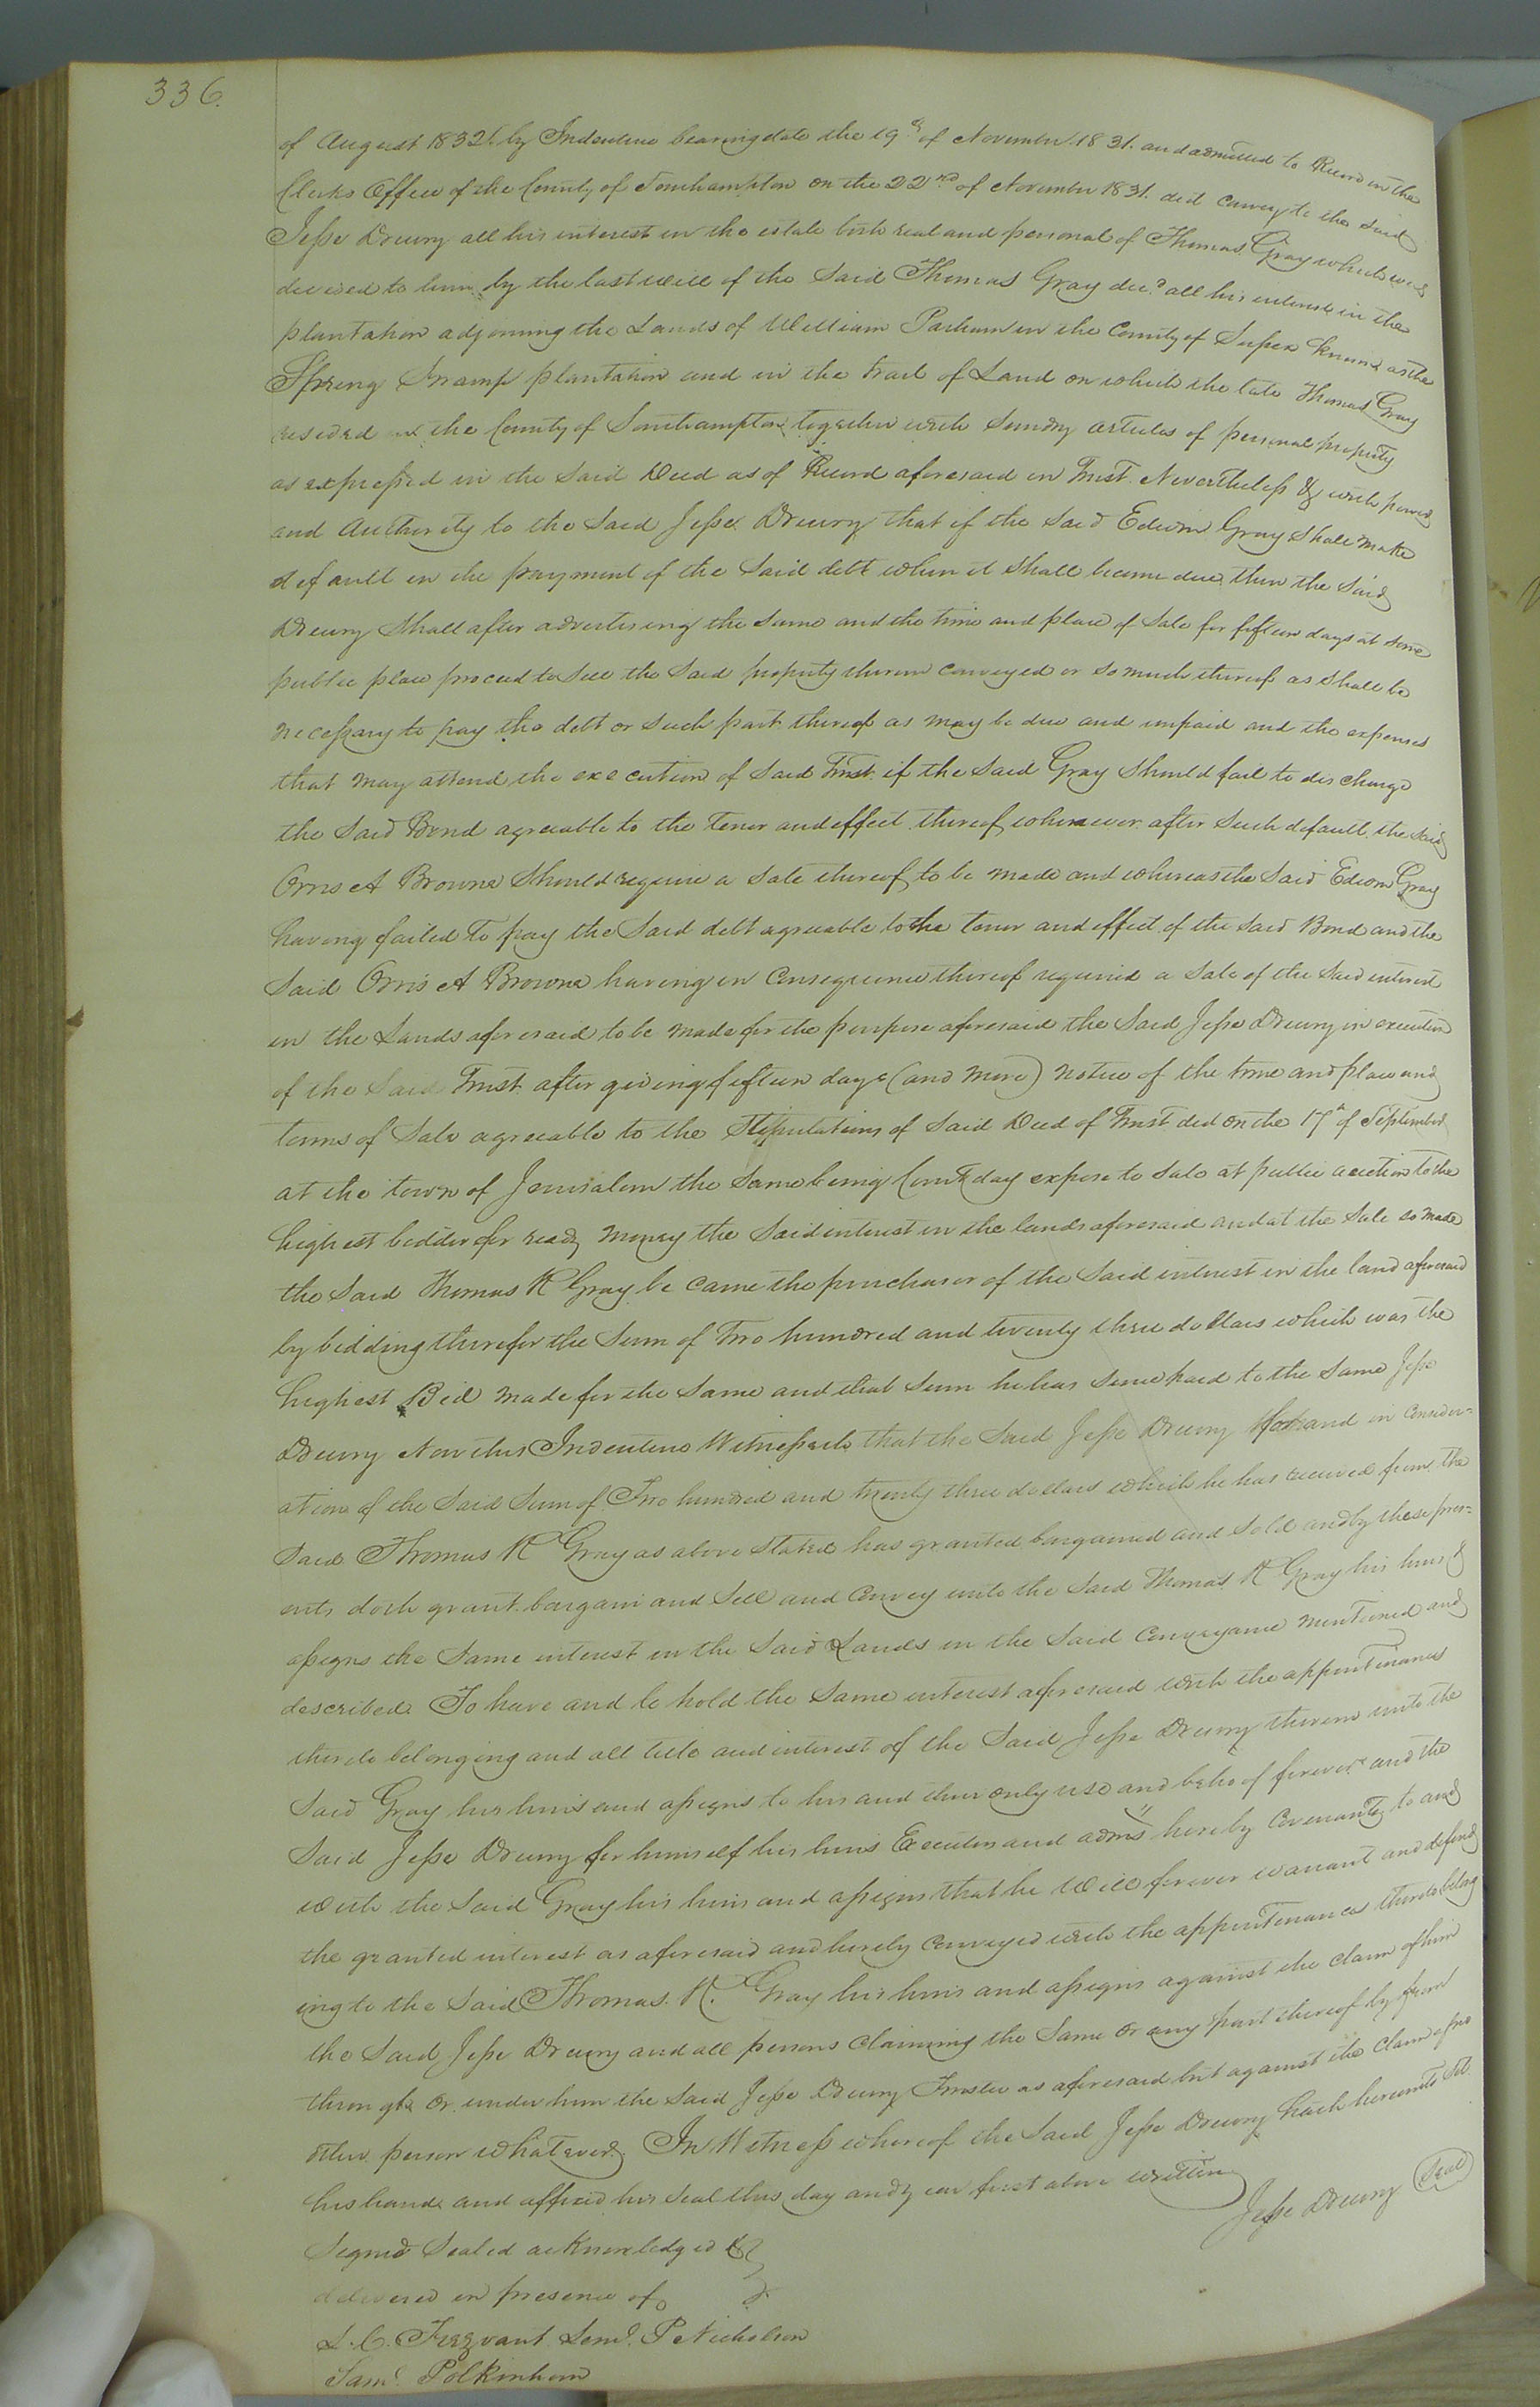 336.
of August 1832 by Indenture bearing date the 19th of November 1831. and admitted to Record in the
Clerks Office of the County of Southampton on the 22nd of November 1831. did convey to the said
Jesse Drewry all his interest in the estate both real and personal of Thomas Gray which was
devised to him by the last will of the Said Thomas Gray decd all his interest in the
plantation adjoining the Lands of William Parham in the County of Sussex known as the
Spring Swamp plantation and in the tract of Land on which the late Thomas Gray
resided in the County of Southampton together with Sundry articles of personal property
as expressed in the Said Deed as of Record aforesaid in Trust Nevertheless & with power
and Authority to the Said Jesse Drewry that if the Said Edwin Gray Shall make
default in the payment of the Said debt when it Shall become due then the Said
Drewry Shall after advertising the Same and the time and place of Sale for fifteen days at some
public place proceed to Sell the Said property therein conveyed or so much thereof as Shall be
necessary to pay the debt or Such part thereof as may be due and unpaid and the expenses
that may attend the execution of Said Trust if the Said Gray Should fail to discharge
the Said Bond agreeable to the tenor and effect thereof whenever after Such default the Said
Orris A Browne Should require a Sale thereof to be made and whereas the Said Edwin Gray
having failed to pay the Said debt agreeable to the tenor and effect of the Said Bond and the
Said Orris A Browne having in Consequence thereof required a Sale of the Said interest
in the Lands aforesaid to be made for the purpose aforesaid the Said Jesse Drewry in execution
of the Said Trust after giving fifteen days (and more) notice of the time and place and
terms of Sale agreeable to the Stipulations of Said Deed of Trust did on the 17th of September
at the town of Jerusalem the Same being Court day expose to Sale at public auction to the
highest bidder for ready money the Said interest in the lands aforesaid and at the Sale so made
the Said Thomas R Gray became the purchaser of the Said interest in the land aforesaid
by bidding therefor the Sum of Two hundred and twenty three dollars which was the
highest Bid made for the Same and that Sum he has Since paid to the Same Jesse
Drewry Now this Indenture Witnesseth that the Said Jesse Drewry for and in Consider=
ation of the Said Sum of Two hundred and twenty three dollars which he has received from the
Said Thomas R Gray as above Stated has granted bargained and Sold and by these pres=
ents doth grant bargain and Sell and Convey unto the Said Thomas R Gray his heirs &
assigns the Same interest in the Said Lands in the Said Conveyance mentioned and
described To have and to hold the Same interest aforesaid with the appurtenances
thereto belonging and all title and interest of the Said Jesse Drewry therein unto the
Said Gray his heirs and assigns to his and their only use and behoof forever and the
Said Jesse Drewry for himself his heirs Executors and admrs hereby Covenants to and
with the Said Gray his heirs and assigns that he will forever warrant and defend
the granted interest as aforesaid and hereby Conveyed with the appurtenances thereto belong
ing to the Said Thomas R. Gray his heirs and assigns against the claim of him
the Said Jesse Drewry and all persons Claiming the Same or any part thereof by from
through or under him the Said Jesse Drewry Trustee as aforesaid but against the Claim of no
other person whatever. In Witness whereof the Said Jesse Drewry hath hereunto Set
his hand and affixed his Seal this day and year first above written
Jesse Drewry Seal
Signed Sealed acknowledged &
delivered in presence of
L. C. Trezvant P Nicholson
Saml. Polkinhorn